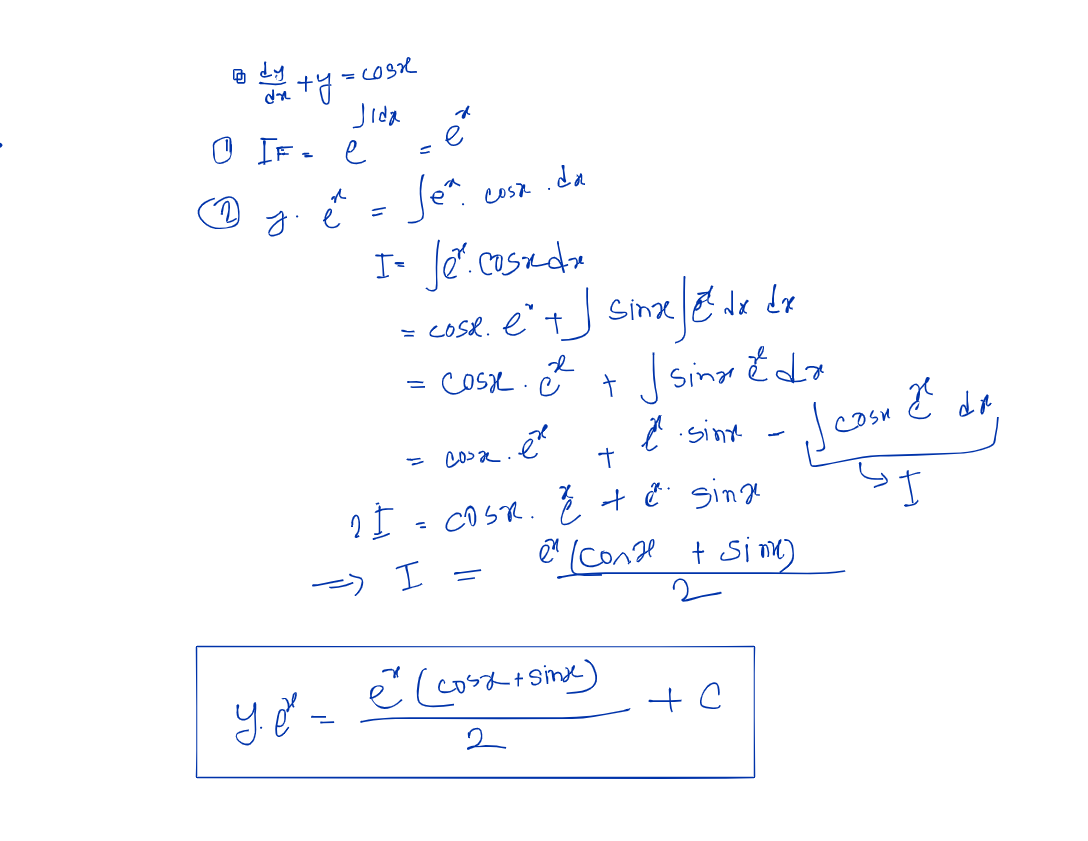 dy/dx + y = cosx
① IF = e^∫1dx = e^x
② y. e^x = ∫e^x. cosx .dx
I = ∫e^x. cosxdx
= cosx. e^x + ∫ sinx ∫e^x dx dx
= cosx . e^x + ∫ sinx e^x dx
= cosx. e^x + e^x .sinx - ∫cosx e^x dx → I
2I = cosx. e^x + e^x. sinx
=> I = e^x (cosx + sinx) / 2
y.e^x = e^x (cosx + sinx) / 2 + C